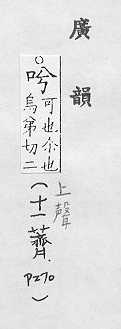 廣韻
上聲
可也尒也
烏第切二
(十一薺 P270)